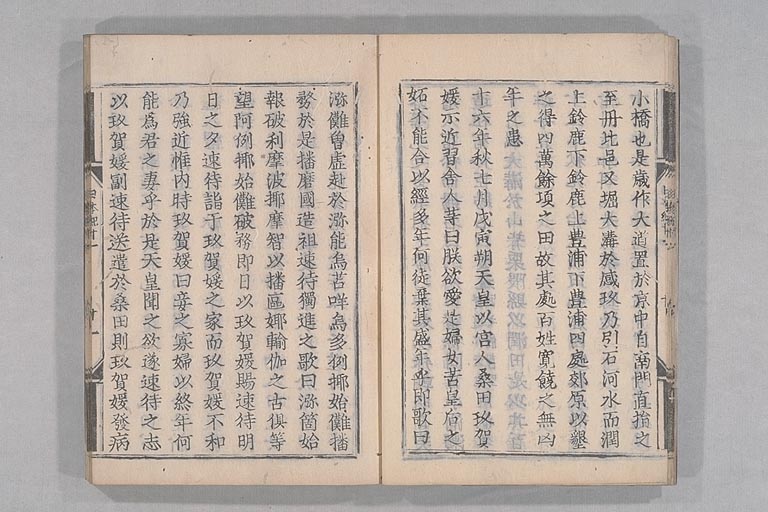 小橋也是歳作大道置於京中自南門直指之
至丹比邑又堀大溝於感玖乃引石河水而潤
上鈴鹿下鈴鹿上豊浦下豊浦四處郊原以墾
之得四萬餘頃之田故其處百姓寛饒之無凶
年之患
十六年秋七月戊寅朔天皇以宮人桑田玖賀
媛示近習舎人等曰朕欲愛是婦女苦皇后之
妬不能合以經多年何徒棄其盛年乎即歌曰
瀰儺曽虚赴於瀰能烏苫咩烏多例揶始儺播
務於是播磨國造祖速待獨進之歌曰瀰箇始
報破利摩波揶摩智以播區娜輸伽之古倶等
望阿例揶始儺破務即日以玖賀媛賜速待明
日之夕速待詣于玖賀媛之家而玖賀媛不和
乃強近帷内時玖賀媛曰妾之寡婦以終年何
能爲君之妻乎於是天皇聞之欲遂速待之志
以玖賀媛副速待送遣於桑田則玖賀媛發病